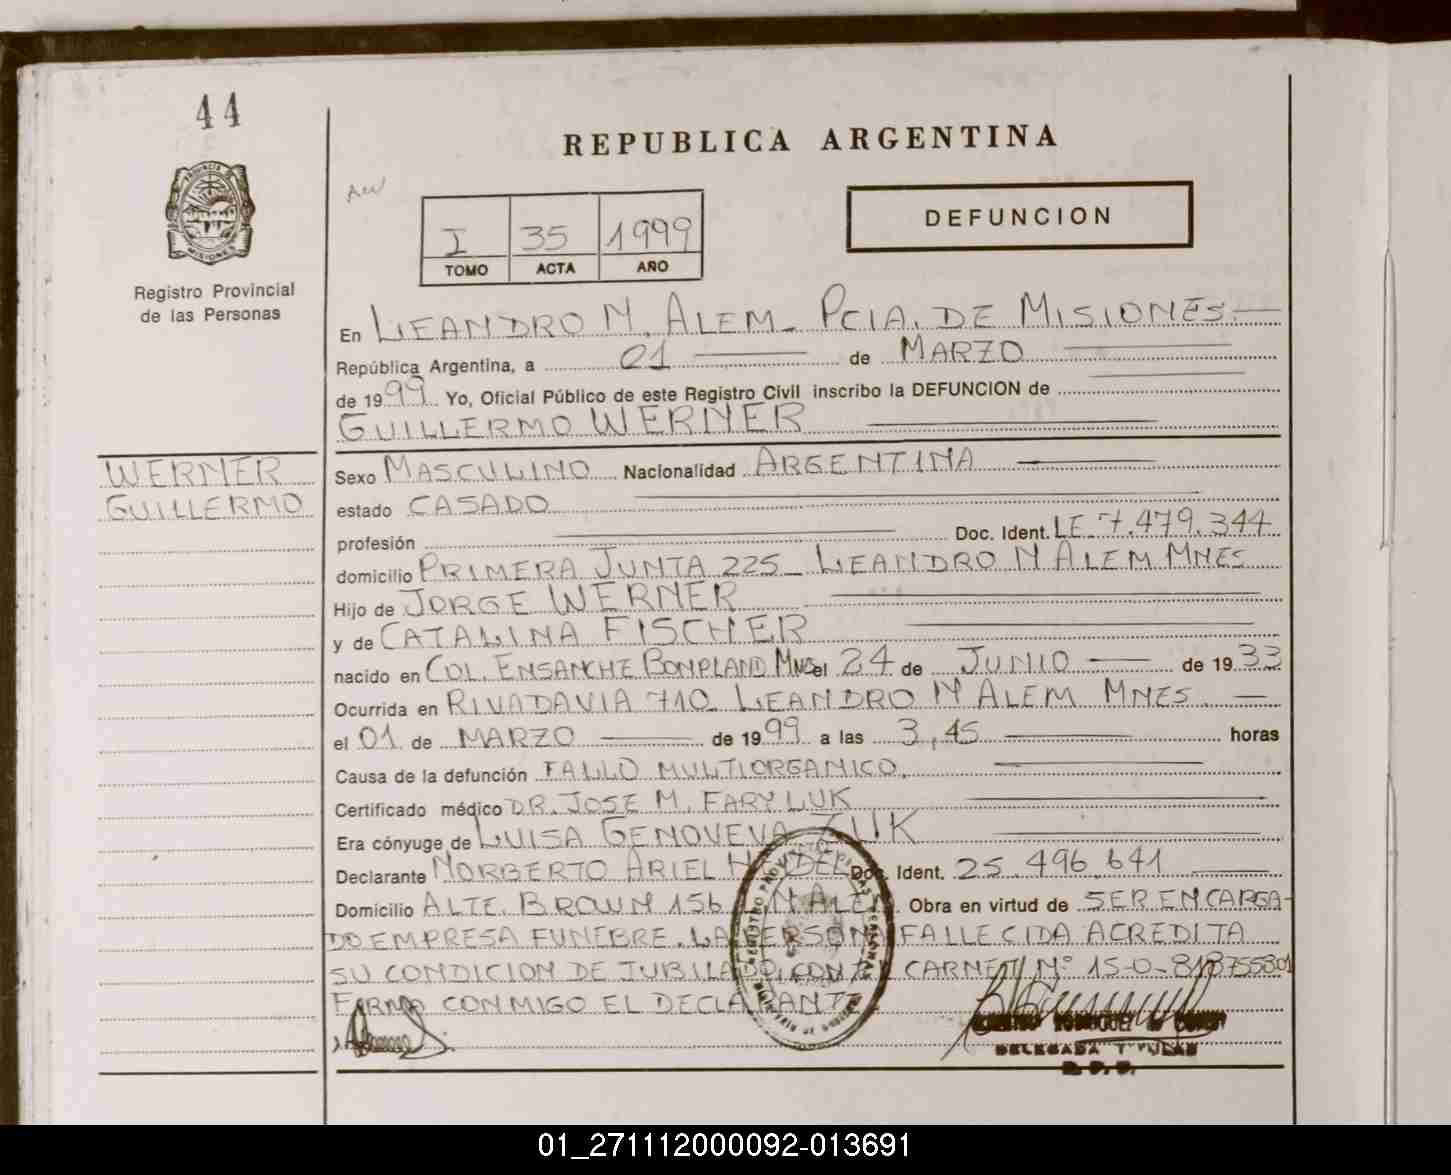 44
REPUBLICA ARGENTINA
I 35 1999
TOMO ACTA AÑO
DEFUNCION
Registro Provincial
de las Personas
En LEANDRO N. ALEM - PCIA. DE MISIONES.
República Argentina, a 01 de MARZO
de 1999 Yo, Oficial Público de este Registro Civil inscribo la DEFUNCION de
GUILLERMO WERNER
WERNER
GUILLERMO
Sexo MASCULINO Nacionalidad ARGENTINA
estado CASADO
profesión Doc. Ident. LE 7.479.344
domicilio PRIMERA JUNTA 225 - LEANDRO N ALEM MNES
Hijo de JORGE WERNER
y de CATALINA FISCHER
nacido en COL. ENSANCHE BONPLAND MNES el 24 de JUNIO de 1933
Ocurrida en RIVADAVIA 710 LEANDRO N ALEM MNES.
el 01 de MARZO de 1999 a las 3,45 horas
Causa de la defunción FALLO MULTIORGANICO.
Certificado médico DR. JOSE M. FARYLUK
Era cónyuge de LUISA GENOVEVA ZUK
Declarante NORBERTO ARIEL Doc. Ident. 25.496.641
Domicilio ALTE. BROWN 156 L.N.ALEM. Obra en virtud de SER ENCARGA-
DO EMPRESA FUNEBRE. LA PERSONA FALLECIDA ACREDITA
SU CONDICION DE JUBILADO, CON EL CARNET Nº 15-0-8187558-01
FIRMA CONMIGO EL DECLARANTE
DELEGADA TITULAR
R. P. P.
01_271112000092-013691